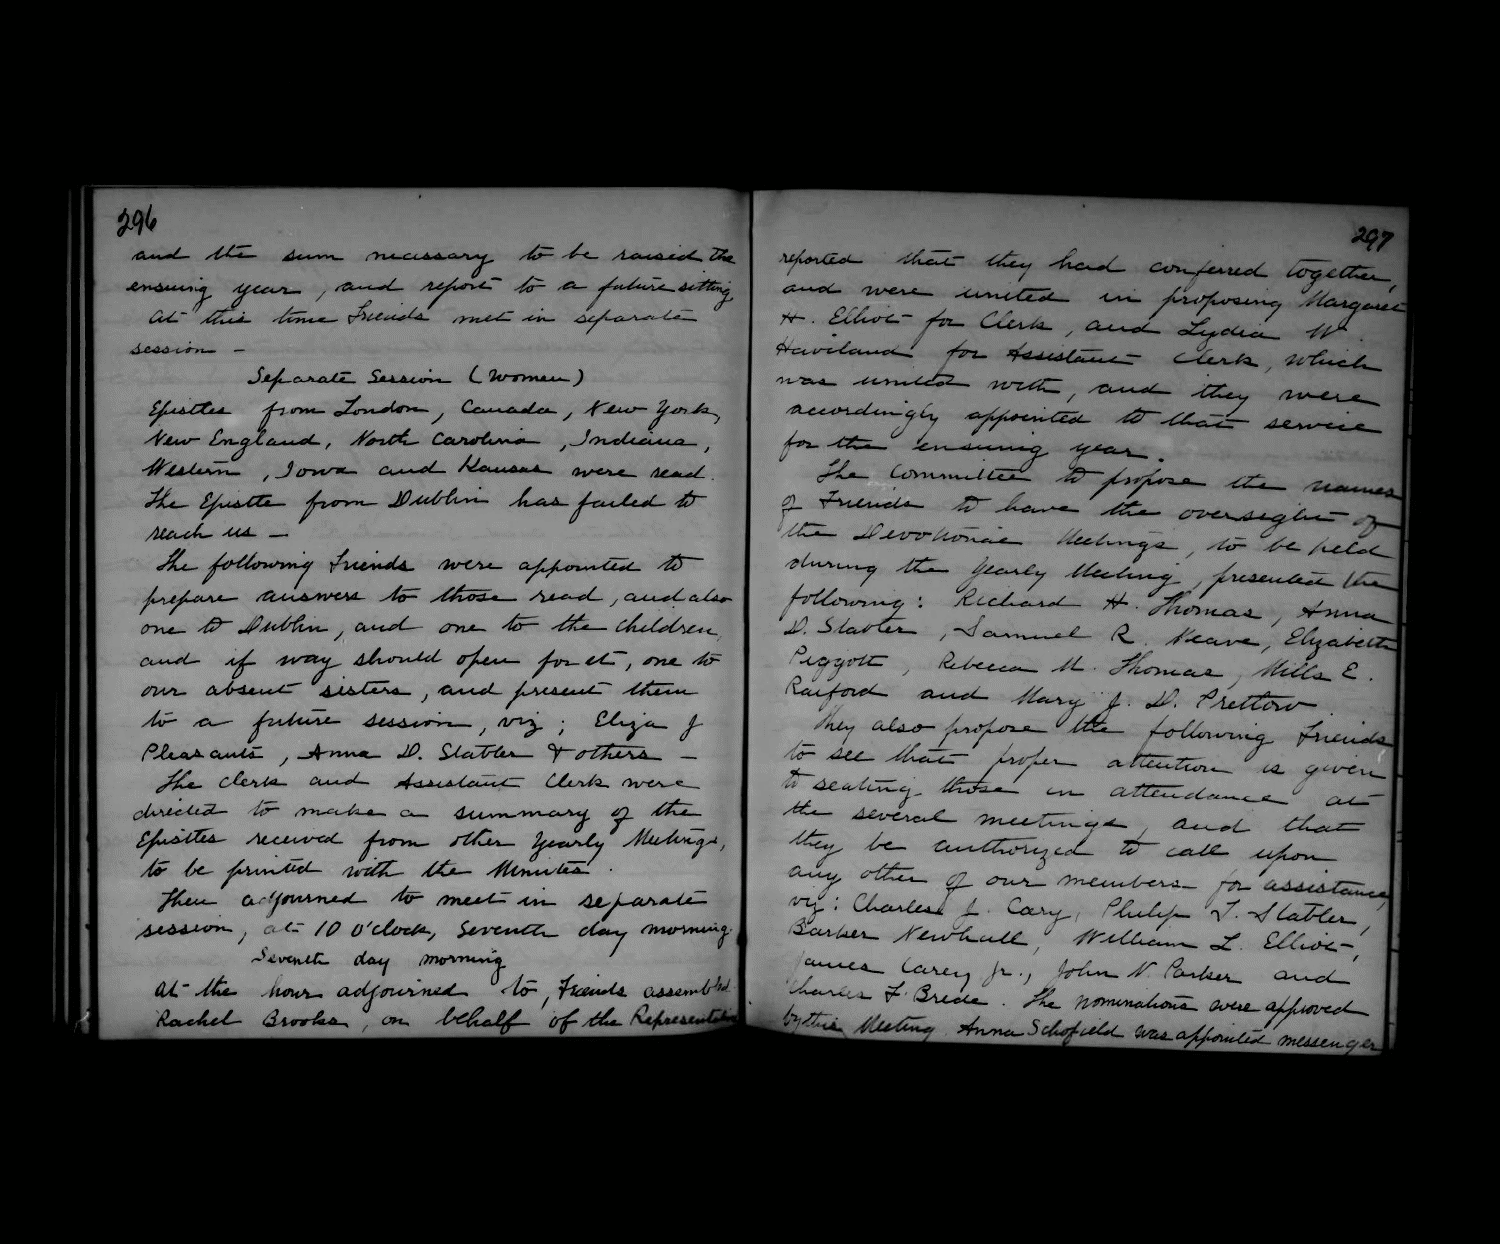 296
and the sum necessary to be raised the
ensuing year, and report to a future sitting
At this time Friends met in separate
session –
Separate Session (Women)
Epistles from London, Canada, New York,
New England, North Carolina, Indiana,
Western, Iowa and Kansas were read.
The Epistle from Dublin has failed to
reach us –
The following Friends were appointed to
prepare answers to those read, and also
one to Dublin, and one to the children,
and if way should open for it, one to
our absent sisters, and present them
to a future session, viz; Eliza J
Pleasants, Anna D. Stabler & others –
The Clerk and Assistant Clerk were
directed to make a summary of the
Epistles received from other Yearly Meetings,
to be printed with the Minutes.
Then adjourned to meet in separate
session, at 10 o'clock, Seventh day morning.
Seventh day morning
At the hour adjourned to, Friends assembled
Rachel Brooks, on behalf of the Representatives
297
reported that they had conferred together,
and were united in proposing Margaret
H. Elliot for Clerk, and Lydia W.
Haviland for Assistant Clerk, which
was united with, and they were
accordingly appointed to that service
for the ensuing year.
The Committee to propose the names
of Friends to have the oversight of
the Devotional Meetings, to be held
during the Yearly Meeting, presented the
following: Richard H. Thomas, Anna
D. Stabler, Samuel R. Neave, Elizabeth
Piggott, Rebecca M. Thomas, Mills E.
Raiford and Mary J. D. Pretlow.
They also propose the following Friends
to see that proper attention is given
to seating those in attendance at
the several meetings, and that
they be authorized to call upon
any other of our members for assistance,
viz: Charles J. Cary, Philip T. Stabler,
Barker Newhall, William L. Elliot,
James Carey Jr., John N. Parker and
Charles F. Brede. The nominations were approved
by this Meeting. Anna Schofield was appointed messenger